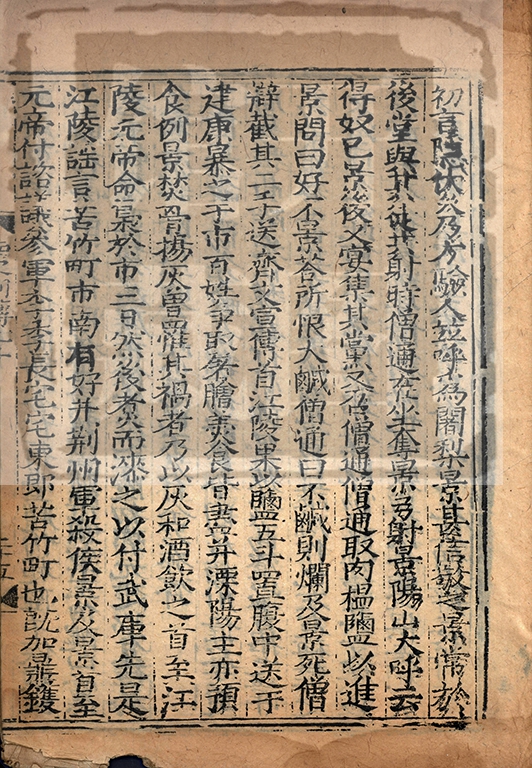 初言隱伏久乃方驗人並呼為闍梨景甚信敬之景常於
後堂與其徒共射時僧通在坐奪景弓射景陽山大呼云
得奴已景後又宴集其黨又召僧通僧通取肉搵鹽以進
景問曰好不景答所恨大鹹僧通曰不鹹則爛及景死僧
辯截其二手送齊文宣傳首江陵果以鹽五斗置腹中送于
建康暴之于市百姓爭取屠膾羹食皆盡并溧陽主亦預
食例景焚骨揚灰曾罹其禍者乃以灰和酒飲之首至江
陵元帝命梟於市三日然後煮而漆之以付武庫先是
江陵謡言苦竹町市南有好井荆州軍殺侯景及景首至
元帝付諮議參軍李季長宅宅東即苦竹町也既加鼎鑊